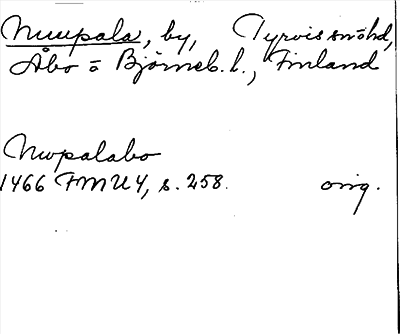 Nuupala, by, Tyrvis snöhd,
Åbo o Björneb. l., Finland
Nwpalabo
1466 FMU 4, s. 258. orig.